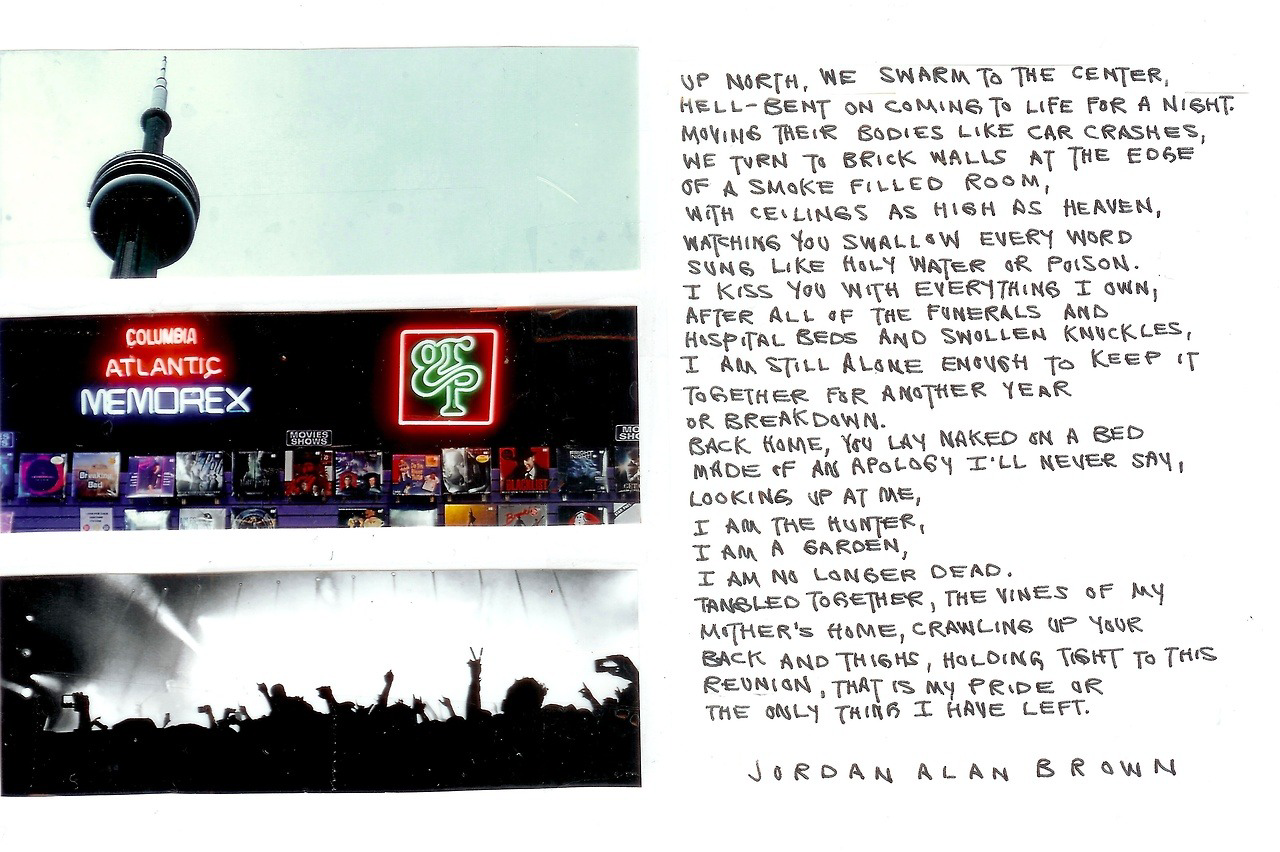 COLUMBIA
ATLANTIC
MEMOREX
GRP
MOVIES
SHOWS
MO
SHO
Breaking
Bad
BLACKLIST
UP NORTH, WE SWARM TO THE CENTER,
HELL-BENT ON COMING TO LIFE FOR A NIGHT.
MOVING THEIR BODIES LIKE CAR CRASHES,
WE TURN TO BRICK WALLS AT THE EDGE
OF A SMOKE FILLED ROOM,
WITH CEILINGS AS HIGH AS HEAVEN,
WATCHING YOU SWALLOW EVERY WORD
SUNG LIKE HOLY WATER OR POISON.
I KISS YOU WITH EVERYTHING I OWN,
AFTER ALL OF THE FUNERALS AND
HOSPITAL BEDS AND SWOLLEN KNUCKLES,
I AM STILL ALONE ENOUGH TO KEEP IT
TOGETHER FOR ANOTHER YEAR
OR BREAKDOWN.
BACK HOME, YOU LAY NAKED ON A BED
MADE OF AN APOLOGY I'LL NEVER SAY,
LOOKING UP AT ME,
I AM THE HUNTER,
I AM A GARDEN,
I AM NO LONGER DEAD.
TANGLED TOGETHER, THE VINES OF MY
MOTHER'S HOME, CRAWLING UP YOUR
BACK AND THIGHS, HOLDING TIGHT TO THIS
REUNION, THAT IS MY PRIDE OR
THE ONLY THING I HAVE LEFT.
JORDAN ALAN BROWN